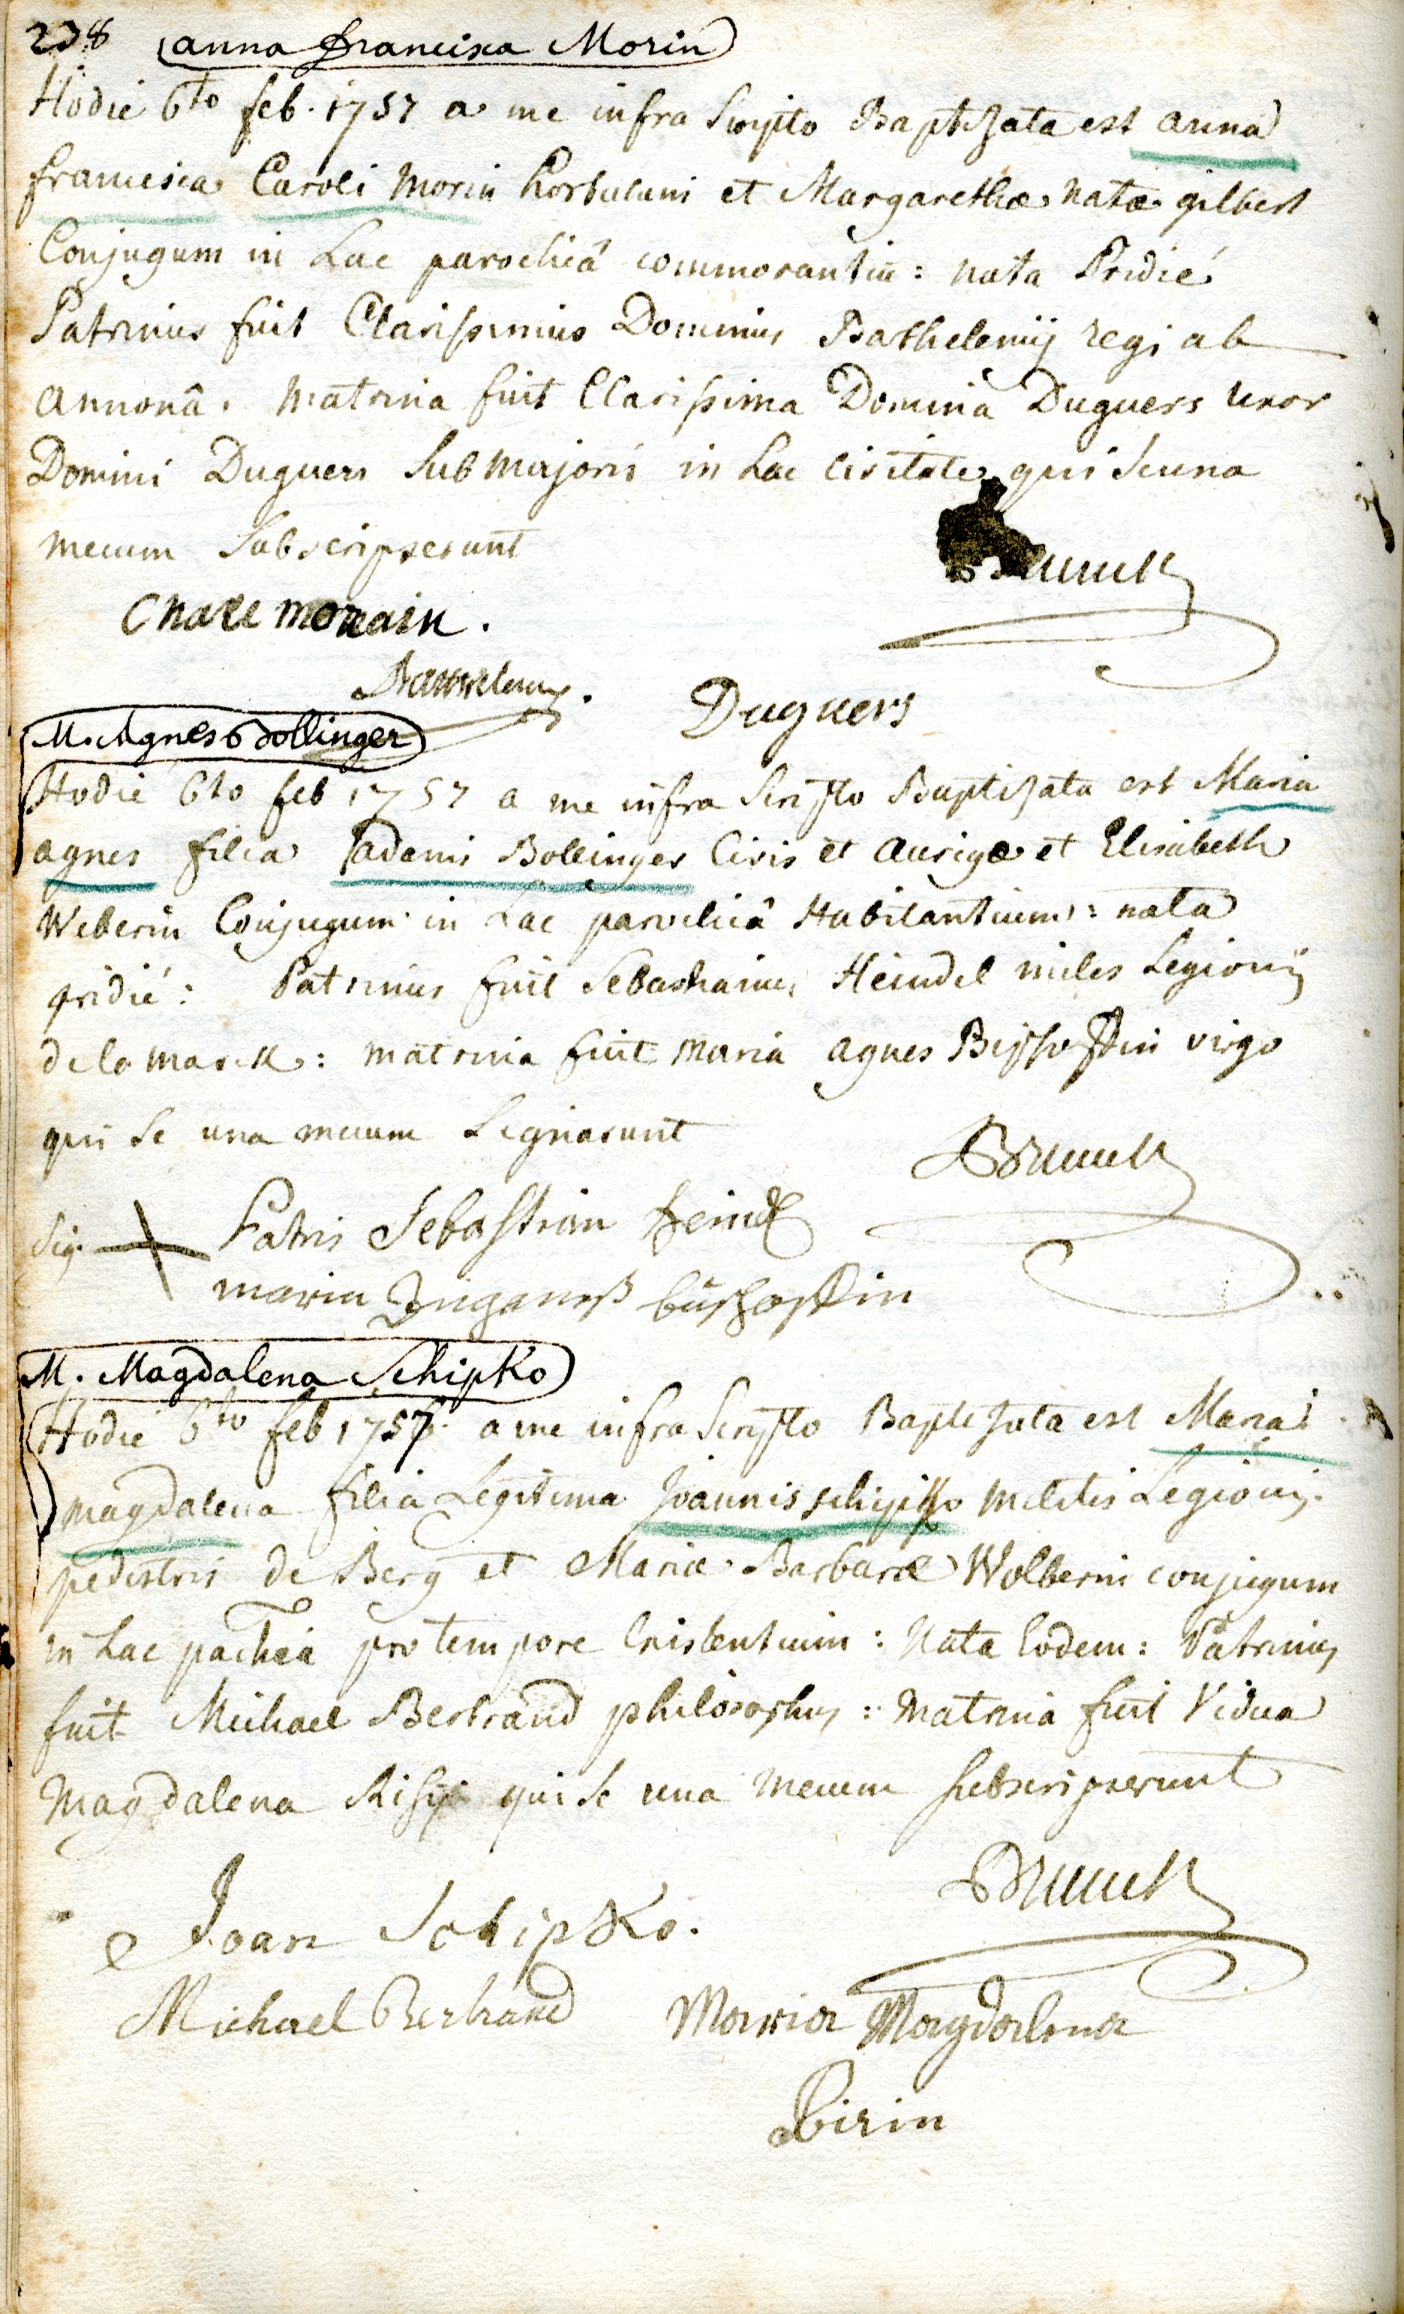 238 anna francisca Morin
Hodie 6to feb. 1757 a me infra Scripto Baptizata est anna
francisca Caroli Morin hortulani et Margarethæ natæ gilbert
Conjugum in hac parochiâ commorantiū: nata Pridié
Patrinus fuit Clarissimus Dominus Barthelemij regi ab
annonâ. matrina fuit Clarissima Domina Duguers uxor
Domini Duguers Submajoris in hac civitate qui se una
mecum Subscripserunt
Brunck
Charle morain.
Barthelemy.
Duguers
M. Agnes Bollinger
Hodie 6to feb 1757 a me infra Scripto Baptizata est Maria
agnes filia adami Bollinger Civis et aurigæ et Elisabeth
Weberin Conjugum in hac parochiâ Habitantium: nata
pridié: Patrinus fuit Sebastianus Heindel miles Legionis
de la marck: matrina fuit maria agnes virgo
qui se una mecum Signarunt
Brunck
Sig. + Patris Sebastian Heindl
maria
M. Magdalena Schipko
Hodie 6to feb 1757 a me infra Scripto Baptizata est Maria
magdalena filia Legitima Joannis schipko militis Legionis
pedestris de Berg et Mariæ Barbaræ Wolberin conjugum
in hac pachiâ pro tempore Existentium: Nata Eodem: Patrinus
fuit Michael Bertrand philosophus: matrina fuit Vidua
Magdalena qui se una mecum subscripserunt
Brunck
Joan Schipko.
Michael Bertrand Maria Magdalena